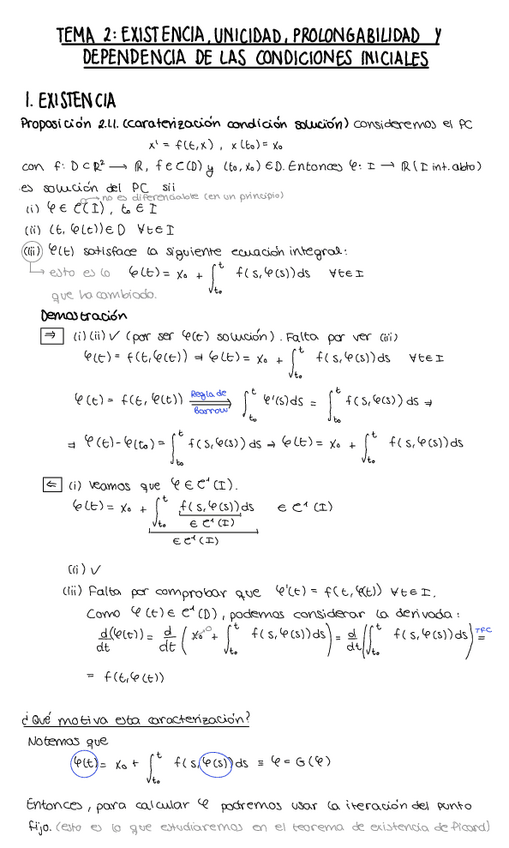 TEMA 2: EXISTENCIA, UNICIDAD, PROLONGABILIDAD Y
DEPENDENCIA DE LAS CONDICIONES INICIALES
1. EXISTENCIA
Proposición 2.1.1. (caraterización condición solución) consideremos el PC
x' = f(t,x) , x(t₀) = x₀
con f: D ⊂ ℝ² → ℝ, f ∈ C(D) y (t₀, x₀) ∈ D. Entonces φ: I → ℝ (I int. abto)
es solución del PC sii
no es diferenciable (en un principio)
(i) φ ∈ C(I), t₀ ∈ I
(ii) (t, φ(t)) ∈ D ∀t ∈ I
(iii) φ(t) satisface la siguiente ecuación integral:
esto es lo φ(t) = x₀ + ∫_{t₀}^{t} f(s, φ(s)) ds ∀t ∈ I
que ha cambiado.
Demostración
⇒ (i) (ii) ✓ (por ser φ(t) solución). Falta por ver (iii)
φ(t) = f(t, φ(t)) ⇒ φ(t) = x₀ + ∫_{t₀}^{t} f(s, φ(s)) ds ∀t ∈ I
φ(t) = f(t, φ(t)) ⇒ Regla de Barrow ∫_{t₀}^{t} φ'(s) ds = ∫_{t₀}^{t} f(s, φ(s)) ds ⇒
⇒ φ(t) - φ(t₀) = ∫_{t₀}^{t} f(s, φ(s)) ds ⇒ φ(t) = x₀ + ∫_{t₀}^{t} f(s, φ(s)) ds
⇐ (i) Veamos que φ ∈ C¹(I).
φ(t) = x₀ + ∫_{t₀}^{t} f(s, φ(s)) ds ∈ C¹(I)
∈ C¹(I)
∈ C¹(I)
(ii) ✓
(iii) Falta por comprobar que φ'(t) = f(t, φ(t)) ∀t ∈ I.
Como φ(t) ∈ C¹(D), podemos considerar la derivada:
d(φ(t))/dt = d/dt (x₀⁰ + ∫_{t₀}^{t} f(s, φ(s)) ds) = d/dt (∫_{t₀}^{t} f(s, φ(s)) ds) = TFC
= f(t, φ(t))
¿Qué motiva esta caracterización?
Notemos que
φ(t) = x₀ + ∫_{t₀}^{t} f(s, φ(s)) ds ≡ φ = G(φ)
Entonces, para calcular φ podremos usar la iteración del punto
fijo. (esto es lo que estudiaremos en el teorema de existencia de Picard)